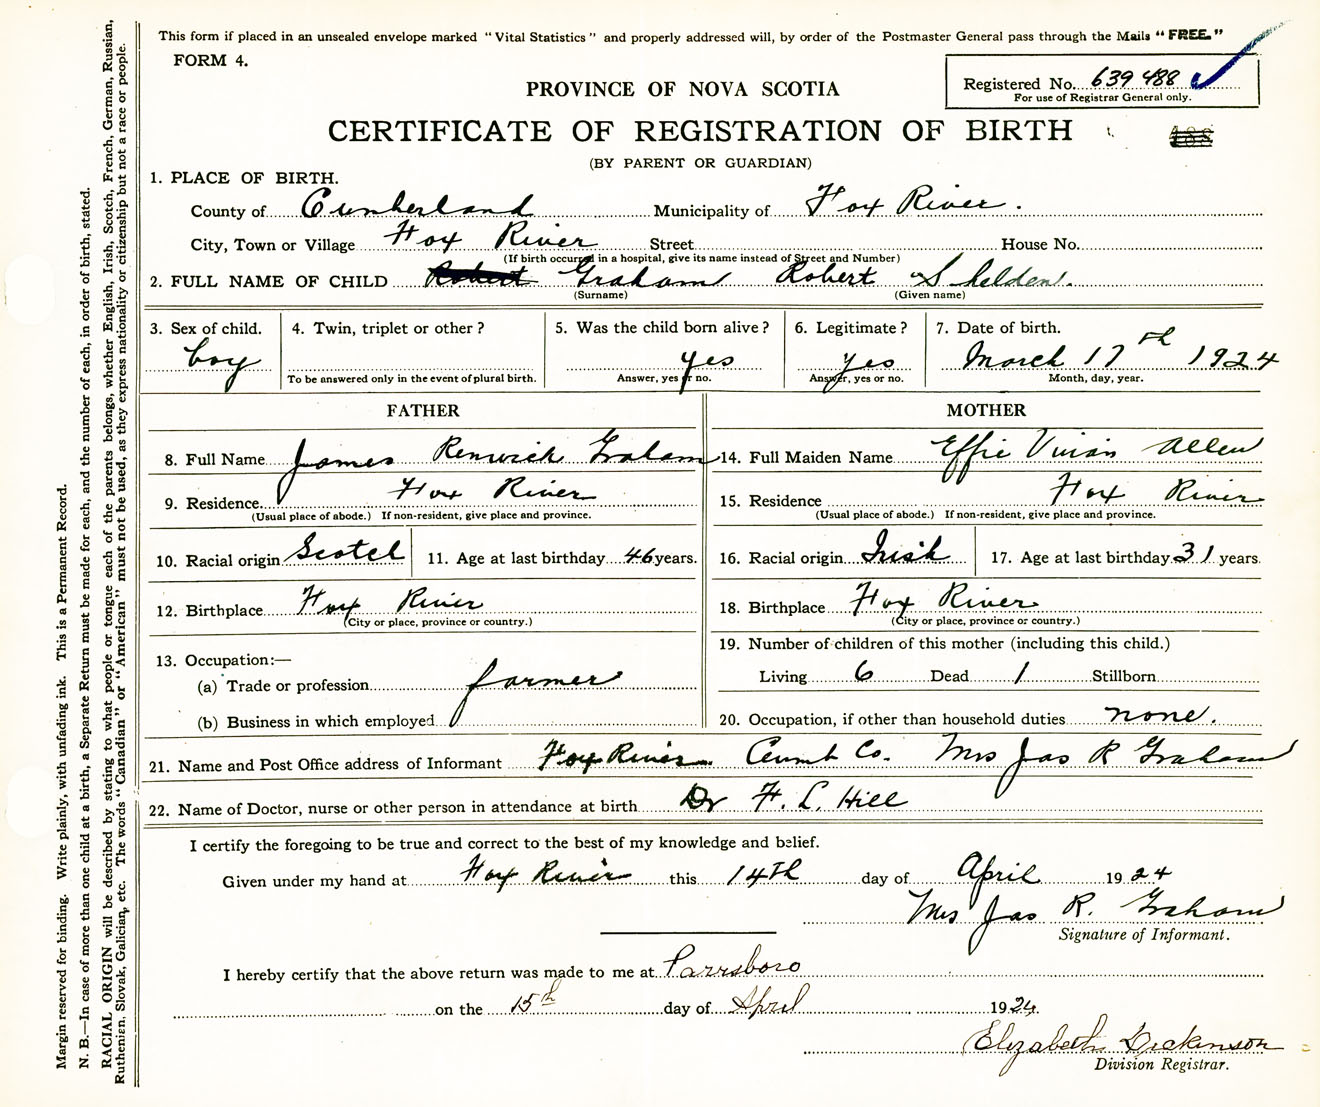 This form if placed in an unsealed envelope marked "Vital Statistics" and properly addressed will, by order of the Postmaster General pass through the Mails "FREE."
FORM 4.
Registered No. 639488
For use of Registrar General only.
PROVINCE OF NOVA SCOTIA
CERTIFICATE OF REGISTRATION OF BIRTH
488
(BY PARENT OR GUARDIAN)
1. PLACE OF BIRTH.
County of Cumberland Municipality of Fox River.
City, Town or Village Fox River Street House No.
(If birth occurred in a hospital, give its name instead of Street and Number)
2. FULL NAME OF CHILD Robert Graham Robert Shelden.
(Surname) (Given name)
3. Sex of child. 4. Twin, triplet or other? 5. Was the child born alive? 6. Legitimate? 7. Date of birth.
boy yes yes March 17th 1924
To be answered only in the event of plural birth. Answer, yes or no. Answer, yes or no. Month, day, year.
FATHER MOTHER
8. Full Name James Renwick Graham 14. Full Maiden Name Effie Vivian Allen
9. Residence Fox River 15. Residence Fox River
(Usual place of abode.) If non-resident, give place and province. (Usual place of abode.) If non-resident, give place and province.
10. Racial origin Scotch 11. Age at last birthday 46 years. 16. Racial origin Irish 17. Age at last birthday 31 years.
12. Birthplace Fox River 18. Birthplace Fox River
(City or place, province or country.) (City or place, province or country.)
13. Occupation:— 19. Number of children of this mother (including this child.)
(a) Trade or profession farmer Living 6 Dead 1 Stillborn
(b) Business in which employed 20. Occupation, if other than household duties none.
21. Name and Post Office address of Informant Fox River Cumb Co. Mrs Jas R Graham
22. Name of Doctor, nurse or other person in attendance at birth Dr F. L. Hill
I certify the foregoing to be true and correct to the best of my knowledge and belief.
Given under my hand at Fox River this 14th day of April 1924
Mrs Jas R. Graham
Signature of Informant.
I hereby certify that the above return was made to me at Parrsboro
on the 15th day of April 1924.
Elizabeth Dickinson
Division Registrar.
Margin reserved for binding. Write plainly, with unfading ink. This is a Permanent Record.
N. B.—In case of more than one child at a birth, a Separate Return must be made for each, and the number of each, in order of birth, stated.
RACIAL ORIGIN will be described by stating to what people or tongue each of the parents belongs, whether English, Irish, Scotch, French, German, Russian,
Ruthenien, Slovak, Galician, etc. The words "Canadian" or "American" must not be used, as they express nationality or citizenship but not a race or people.